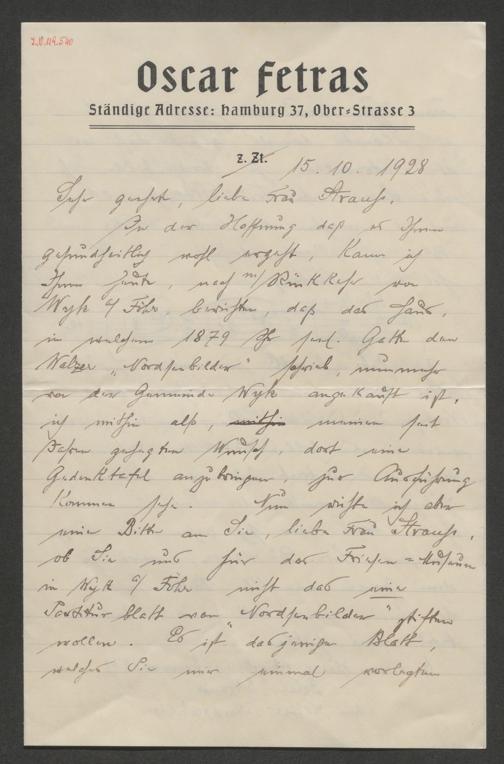 Oscar Fetras
Ständige Adresse: Hamburg 37, Ober-Strasse 3
z. Zt. 15. 10. 1928
Sehr geehrte, liebe Frau Strauss.
In der Hoffnung daß es Ihnen
gesundheitlich wohl ergeht, kann ich
Ihnen heute, nach m/ Rückkehr von
Wyk a/ Föhr, berichten, daß das Haus,
in welchem 1879 Ihr sel. Gatte den
Walzer „Nordseebilder" schrieb, nunmehr
von der Gemeinde Wyk angekauft ist,
ich mithin also, mithin meinen seit
Jahren gehegten Wunsch, dort eine
Gedenktafel anzubringen, zur Ausführung
kommen sehe. Nun richte ich aber
eine Bitte an Sie, liebe Frau Strauss,
ob Sie uns für das Friesen=Museum
in Wyk a/ Föhr nicht das eine
Partitur blatt von „Nordseebilder" stiften
wollen. Es ist dasjenige Blatt,
welches Sie mir einmal vorlegten